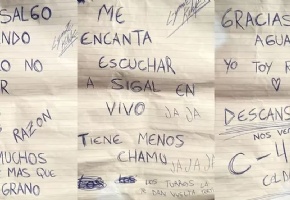 SALGO
ANDO
O NO
R
RAZON
MUCHOS
MAS QUE
GRANO
ME
ENCANTA
ESCUCHAR
A SIGAL EN
VIVO JA JA
TIENE MENOS
CHAMU JA JA J
LOS TURROS LA
DAN VUELTA
GRACIAS
AGUA
YO TOY R
♡
DESCANS
NOS VE
C-4